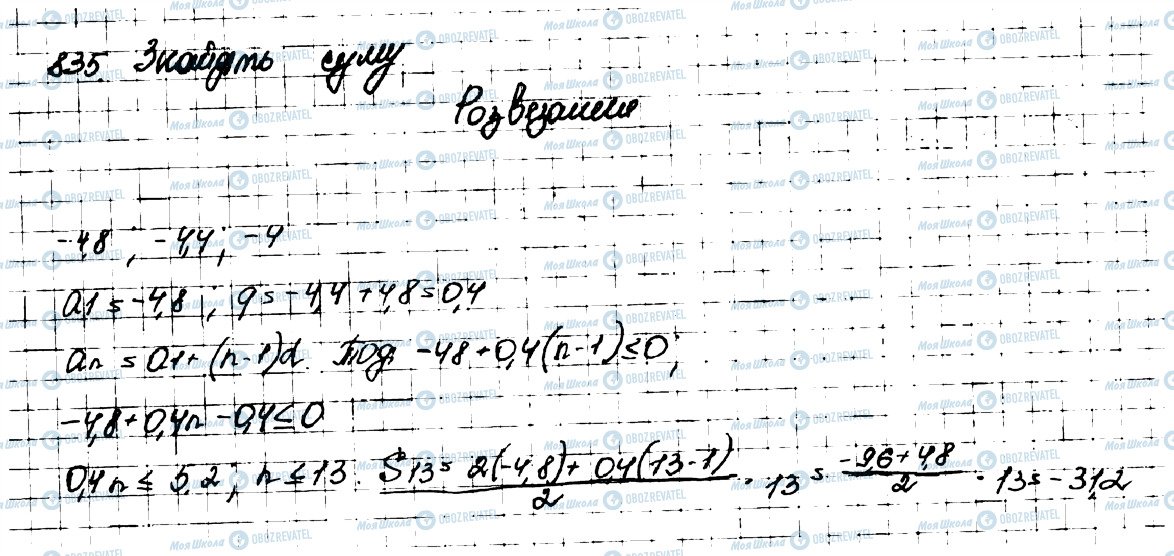 835. Знайдіть суму
Розв'язання
-4,8 ; -4,4 ; -4
a1 = -4,8 ; d = -4,4 + 4,8 = 0,4
an = a1 + (n-1)d. Тоді -4,8 + 0,4(n-1) ≤ 0;
-4,8 + 0,4n - 0,4 ≤ 0
0,4n ≤ 5,2 ; n ≤ 13. S13 = 2(-4,8) + 0,4(13-1) / 2 · 13 = -9,6 + 4,8 / 2 · 13 = -31,2